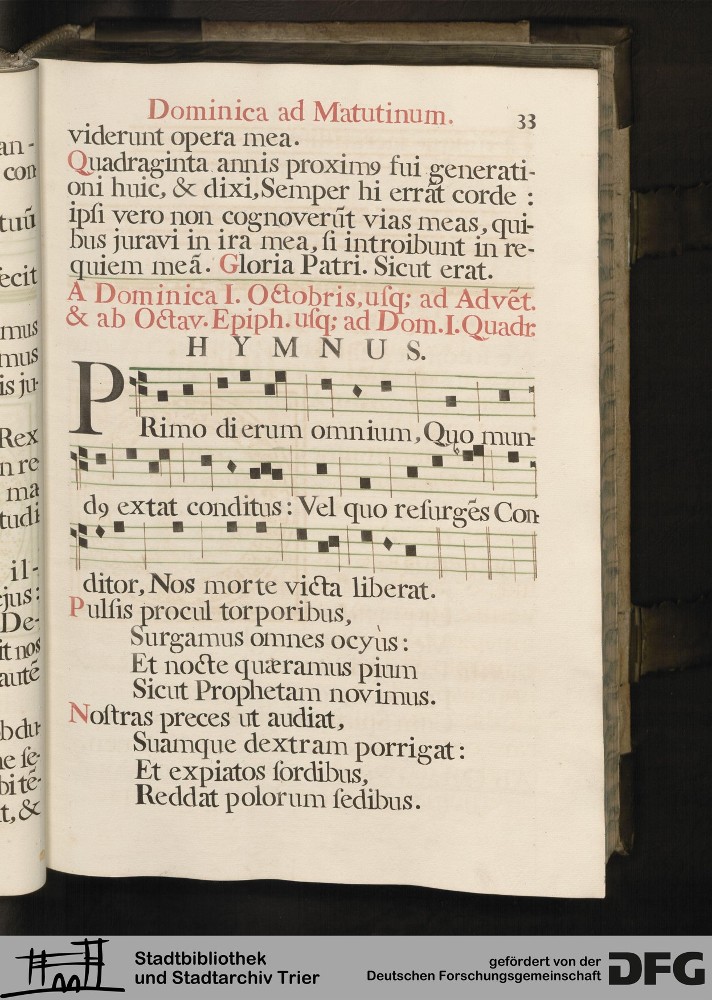 Dominica ad Matutinum. 33
viderunt opera mea.
Quadraginta annis proximꝯ fui generati-
oni huic, & dixi, Semper hi errāt corde :
ipſi vero non cognoverūt vias meas, qui-
bus juravi in ira mea, ſi introibunt in re-
quiem meā. Gloria Patri. Sicut erat.
A Dominica I. Octobris, uſq; ad Advēt.
& ab Octav. Epiph. uſq; ad Dom. I. Quadr.
HYMNUS.
PRimo dierum omnium, Quo mun-
dꝯ extat conditus : Vel quo reſurgēs Con-
ditor, Nos morte victa liberat.
Pulſis procul torporibus,
Surgamus omnes ocyùs :
Et nocte quæramus pium
Sicut Prophetam novimus.
Noſtras preces ut audiat,
Suamque dextram porrigat :
Et expiatos ſordibus,
Reddat polorum ſedibus.
an-
con
tuū
fecit
mus
mus
is ju-
Rex
n re
ma
tudi
il-
ejus :
De-
it nos
autē
bdu-
ne ſe-
bi tē-
t, &
Stadtbibliothek
und Stadtarchiv Trier
gefördert von der
Deutschen Forschungsgemeinschaft
DFG